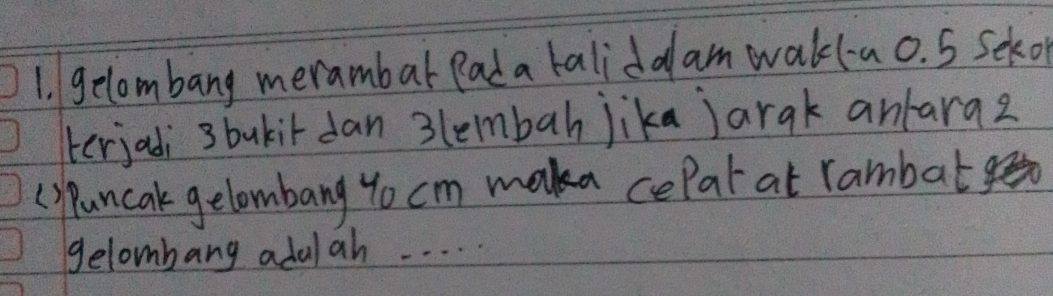 1. gelombang merambat Pada tali dalam waktu 0.5 Sekon
terjadi 3 bukit dan 3 lembah jika jarak antara 2
Puncak gelombang 40 cm maka cePat at rambat
gelombang adalah .....